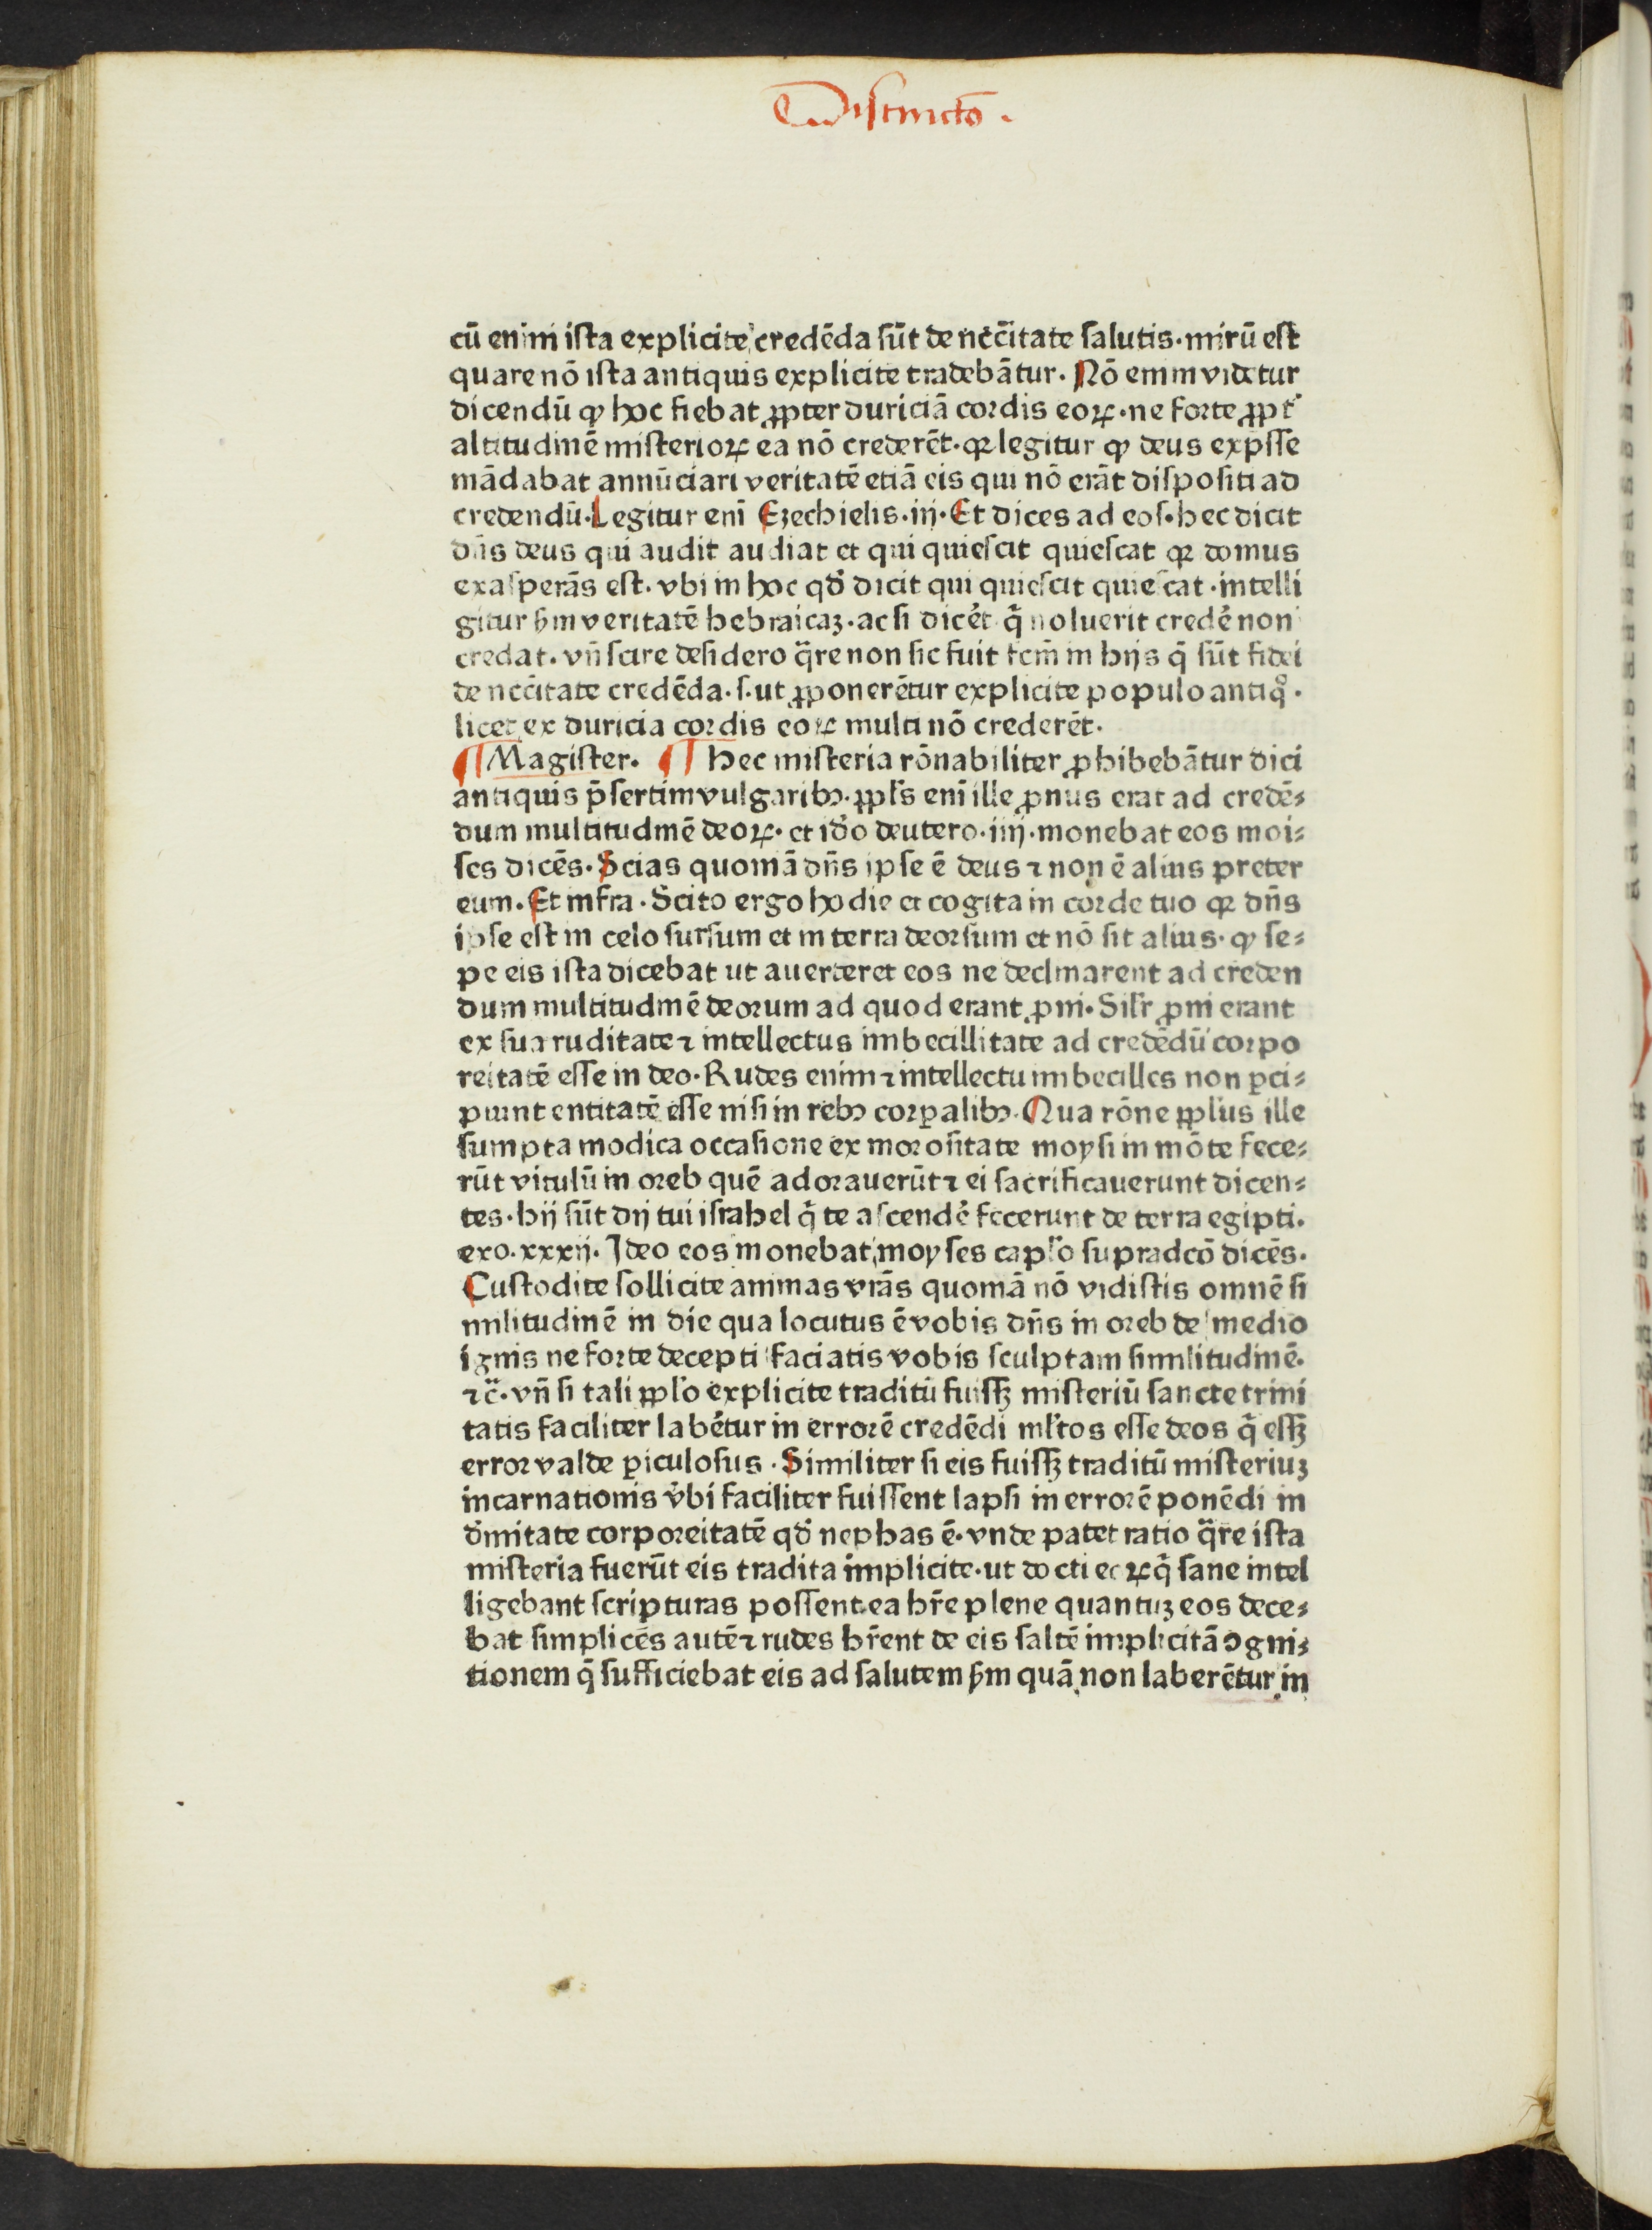 Distinctō.
cū enim ista explicite credēda sūt de nēcītate salutis. mirū est
quare nō ista antiquis explicite tradebātur. Nō enim videtur
dicendū ꝙ hoc fiebat ꝓpter duriciā cordis eoꝝ. ne forte ꝓpt᷑
altitudinē misterioꝝ ea nō crederēt. qꝛ legitur ꝙ deus exp̄sse
mādabat annūciari veritatē etiā eis qui nō erāt dispositi ad
credendū. Legitur enī Ezechielis. iij. Et dices ad eos. hec dicit
dn̄s deus qui audit audiat et qui quiescit quiescat qꝛ domus
exasperās est. vbi in hoc qd̄ dicit qui quiescit quiescat. intelli
gitur ẜm veritatē hebraicaꝫ. ac si dicet᷑ q̄ noluerit crede᷑ non
credat. vn̄ scire desidero q̄re non sic fuit fcm̄ in hijs q̄ sūt fidei
de nccītate credēda. s. ut ꝓponerētur explicite populo antiqͦ.
licet ex duricia cordis eoꝝ multi nō crederēt.
¶ Magister. ¶ Hec misteria rōnabiliter ꝓhibebātur dici
antiquis p̄sertim vulgaribꝫ. ppl's enī ille ꝓnus erat ad credē⸗
dum multitudinē deoꝝ. et idō deutero. iiij. monebat eos moi⸗
ses dicēs. Scias quoniā dn̄s ipse ē deus ⁊ non ē alius preter
eum. Et infra. Scito ergo hodie et cogita in corde tuo qꝛ dn̄s
ipse est in celo sursum et in terra deorsum et nō sit alius. ꝙ se⸗
pe eis ista dicebat ut auerteret eos ne declinarent ad creden
dum multitudinē deorum ad quod erant ꝓni. Sil'r ꝓni erant
ex sua ruditate ⁊ intellectus imbecillitate ad credēdū corpo
reitatē esse in deo. Rudes enim ⁊ intellectu imbecilles non ꝑci⸗
piunt entitatē esse nisi in rebꝫ corꝑalibꝫ. Qua rōne ppl'us ille
sumpta modica occasione ex morositate moysi in mōte fece⸗
rūt vitulū in oreb quē adorauerūt ⁊ ei sacrificauerunt dicen⸗
tes. hij sūt dij tui israhel q̄ te ascende᷑ fecerunt de terra egipti.
exo. xxxij. Ideo eos monebat moyses capl'o supradcō dicēs.
Custodite sollicite animas vrās quoniā nō vidistis omnē si
militudinē in die qua locutus ē vobis dn̄s in oreb de medio
ignis ne forte decepti faciatis vobis sculptam similitudinē.
⁊c̄. vn̄ si tali ppl'o explicite traditū fuissꝫ misteriū sancte trini
tatis faciliter labe᷑tur in errorē credēdi ml'tos esse deos q̄ essꝫ
error valde ꝑiculosus. Similiter si eis fuissꝫ traditū misteriuꝫ
incarnationis v᷑bi faciliter fuissent lapsi in errorē ponēdi in
d᷑initate corporeitatē qd̄ nephas ē. vnde patet ratio q̄re ista
misteria fuerūt eis tradita implicite. ut docti eoꝝ q̄ sane intel
ligebant scripturas possent ea hr̄e plene quantuꝫ eos dece⸗
bat simplices autē ⁊ rudes hr̄ent de eis saltē implicitā ꝯgni⸗
tionem q̄ sufficiebat eis ad salutem ẜm quā non laberētur in